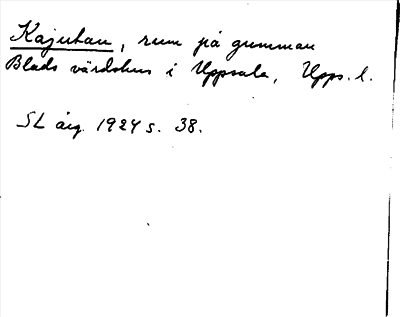 Kajutan, rum på gumman
Blads värdshus i Uppsala, Upps. l.
SL årg. 1924 s. 38.